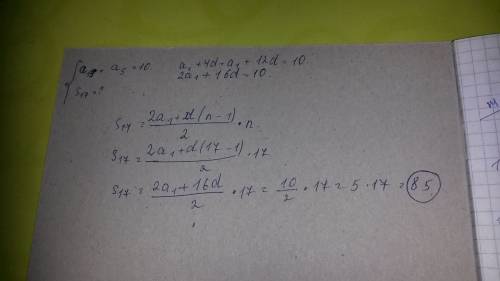 a₁₃ + a₅ = 10. a₁ + 4d - a₁ + 12d = 10.
S₁₇ = ? 2a₁ + 16d = 10.
S₁₇ = (2a₁ + d(n - 1))/2 · n.
S₁₇ = (2a₁ + d(17 - 1))/2 · 17
S₁₇ = (2a₁ + 16d)/2 · 17 = 10/2 · 17 = 5 · 17 = 85